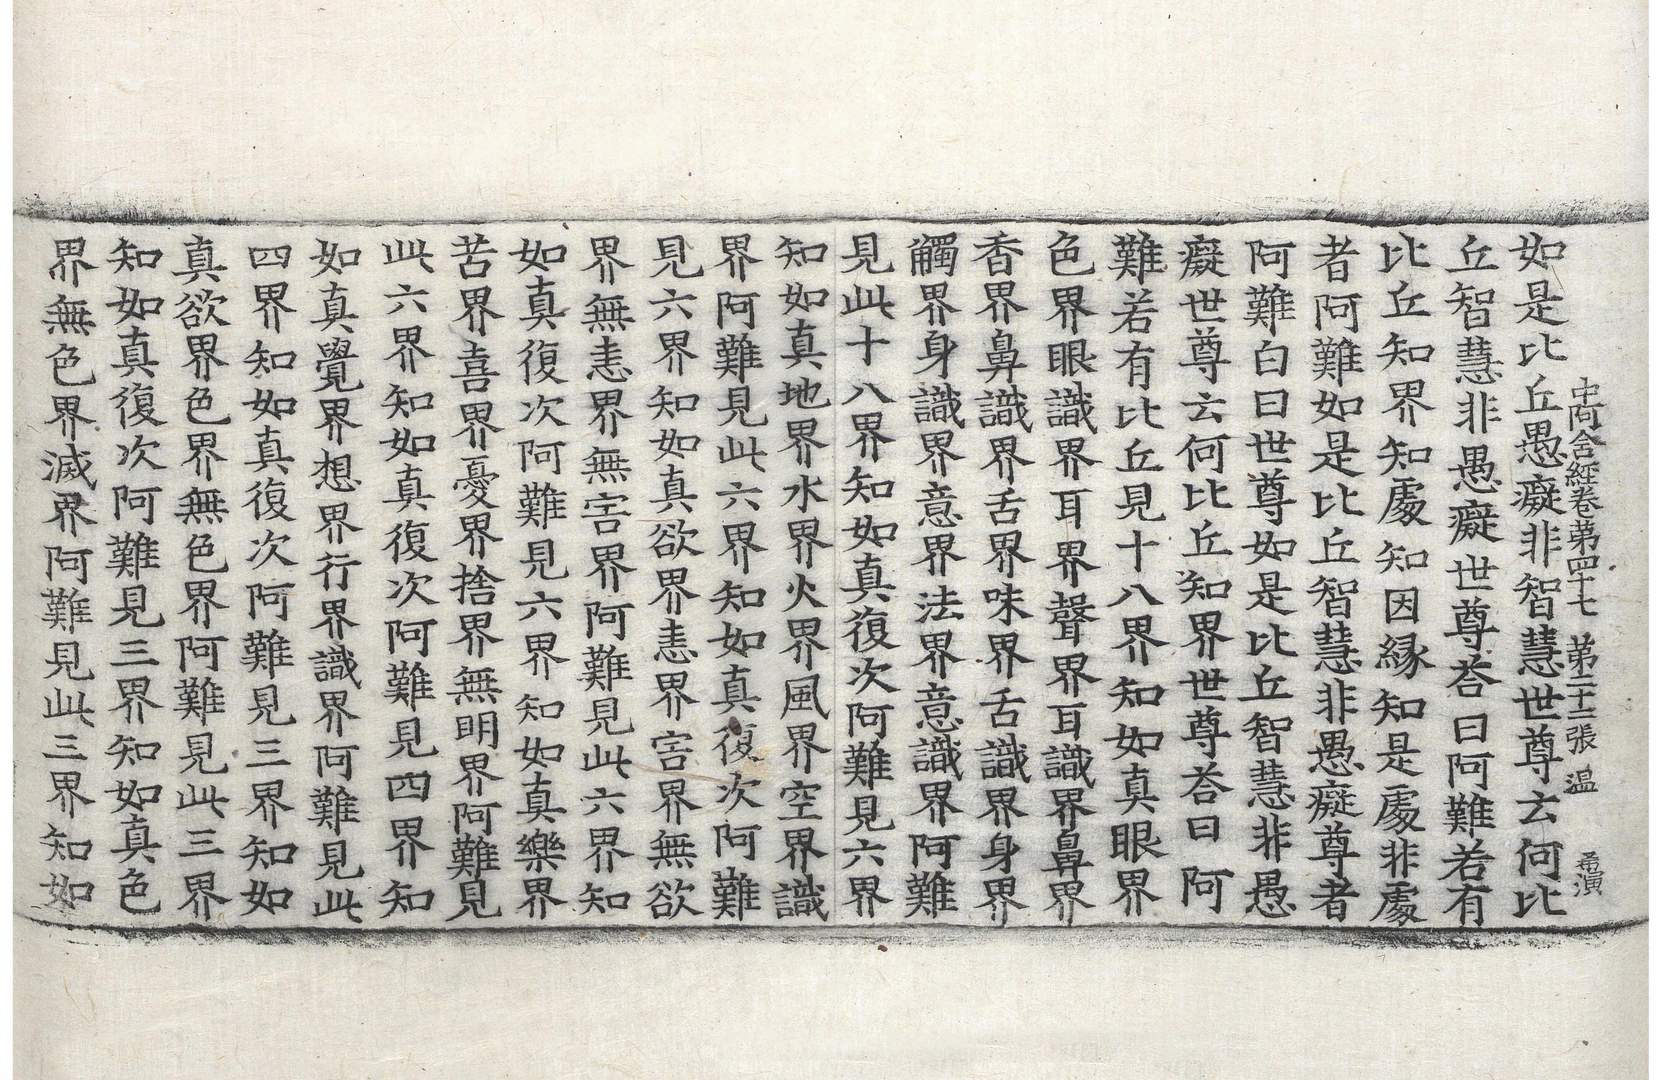 中阿含經卷第四十七 第二十二張 温 希演
如是比丘愚癡非智慧世尊云何比
丘智慧非愚癡世尊荅曰阿難若有
比丘知界知處知因緣知是處非處
者阿難如是比丘智慧非愚癡尊者
阿難白曰世尊如是比丘智慧非愚
癡世尊云何比丘知界世尊荅曰阿
難若有比丘見十八界知如真眼界
色界眼識界耳界聲界耳識界鼻界
香界鼻識界舌界味界舌識界身界
觸界身識界意界法界意識界阿難
見此十八界知如真復次阿難見六界
知如真地界水界火界風界空界識
界阿難見此六界知如真復次阿難
見六界知如真欲界恚界害界無欲
界無恚界無害界阿難見此六界知
如真復次阿難見六界知如真樂界
苦界喜界憂界捨界無明界阿難見
此六界知如真復次阿難見四界知
如真覺界想界行界識界阿難見此
四界知如真復次阿難見三界知如
真欲界色界無色界阿難見此三界
知如真復次阿難見三界知如真色
界無色界滅界阿難見此三界知如